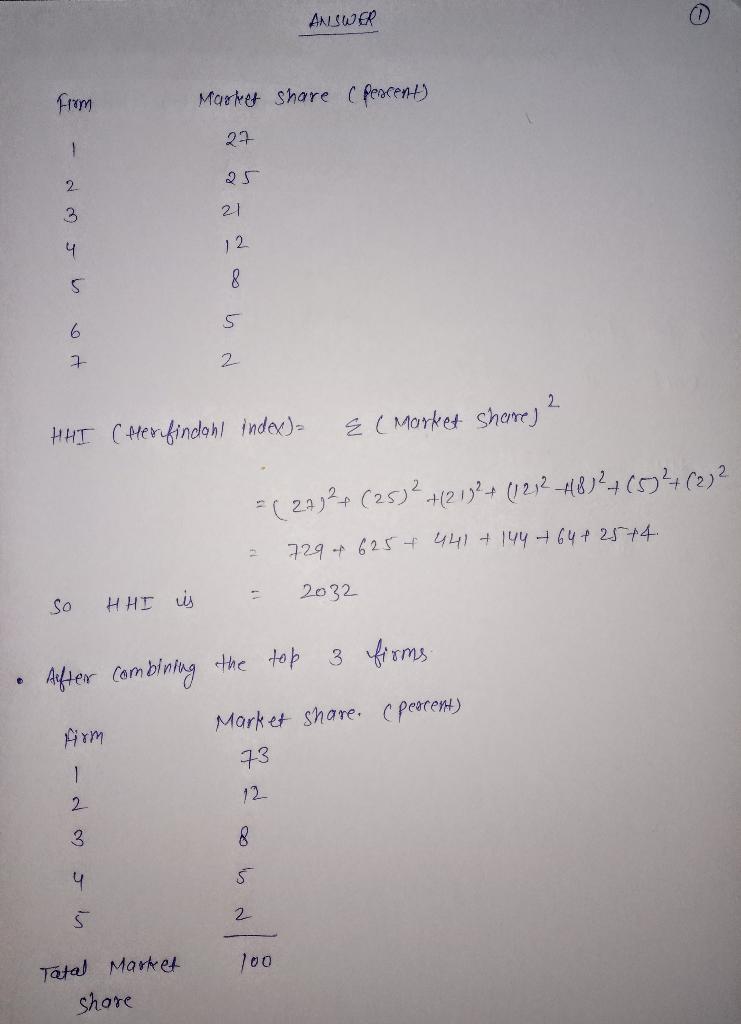 ANSWER
①
Firm Market share (Percent)
1 27
2 25
3 21
4 12
5 8
6 5
7 2
HHI (Herfindahl index)= Σ (Market share)²
=(27)²+ (25)² +(21)²+ (12)² +(8)²+ (5)²+ (2)²
= 729 + 625 + 441 + 144 + 64 + 25 +4.
So HHI is = 2032
• After Combining the top 3 firms.
Firm Market share. (Percent)
1 73
2 12
3 8
4 5
5 2
Tatal Market 100
share